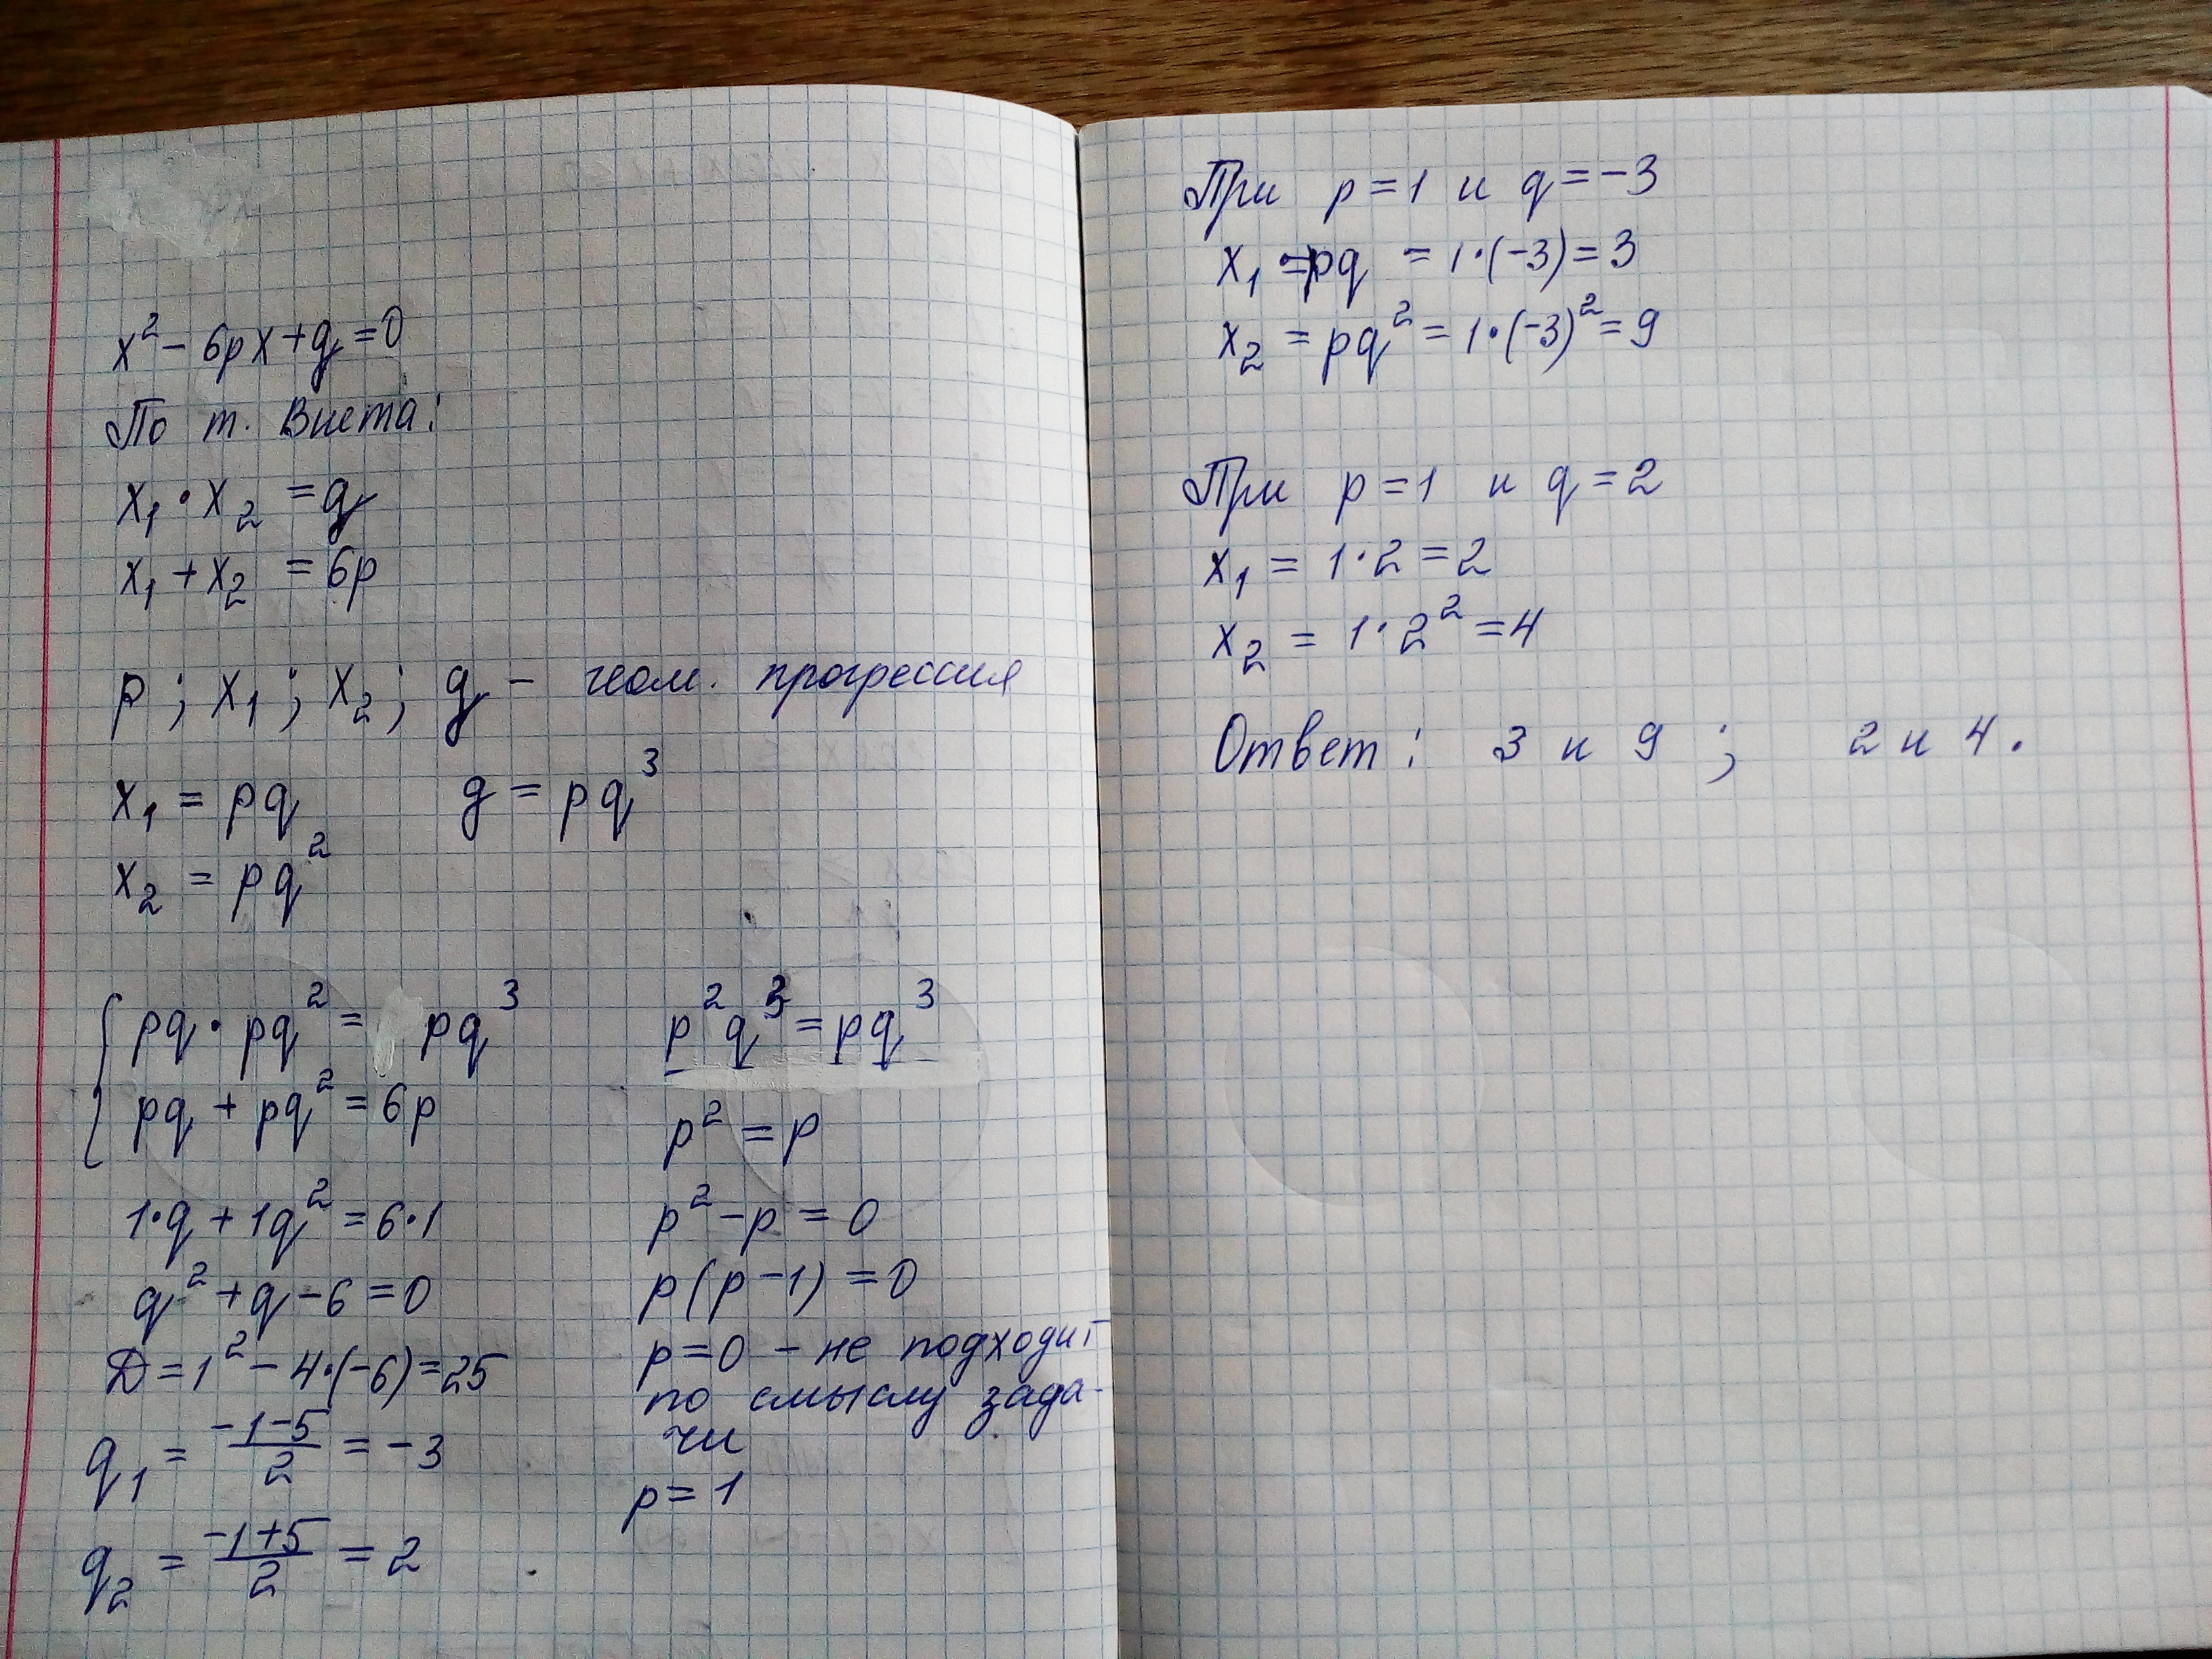 x² - 6px + g = 0
По т. Виета:
x₁ · x₂ = g
x₁ + x₂ = 6p
p ; x₁ ; x₂ ; g - геом. прогрессия
x₁ = pq g = pq³
x₂ = pq²
pq · pq² = pq³
pq + pq² = 6p
1·q + 1q² = 6·1
q² + q - 6 = 0
Д = 1² - 4·(-6) = 25
q₁ = (-1-5)/2 = -3
q₂ = (-1+5)/2 = 2
p²q³ = pq³
p² = p
p² - p = 0
p(p-1) = 0
p = 0 - не подходит
по смыслу зада-
чи
p = 1
При p = 1 и q = -3
x₁ = pq = 1·(-3) = 3
x₂ = pq² = 1·(-3)² = 9
При p = 1 и q = 2
x₁ = 1·2 = 2
x₂ = 1·2² = 4
Ответ: 3 и 9 ; 2 и 4.